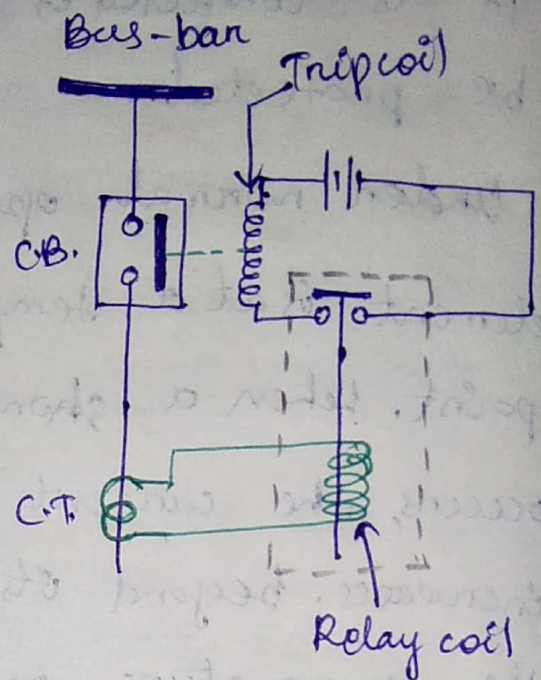 Bus-bar
Trip coil
C.B.
C.T.
Relay coil